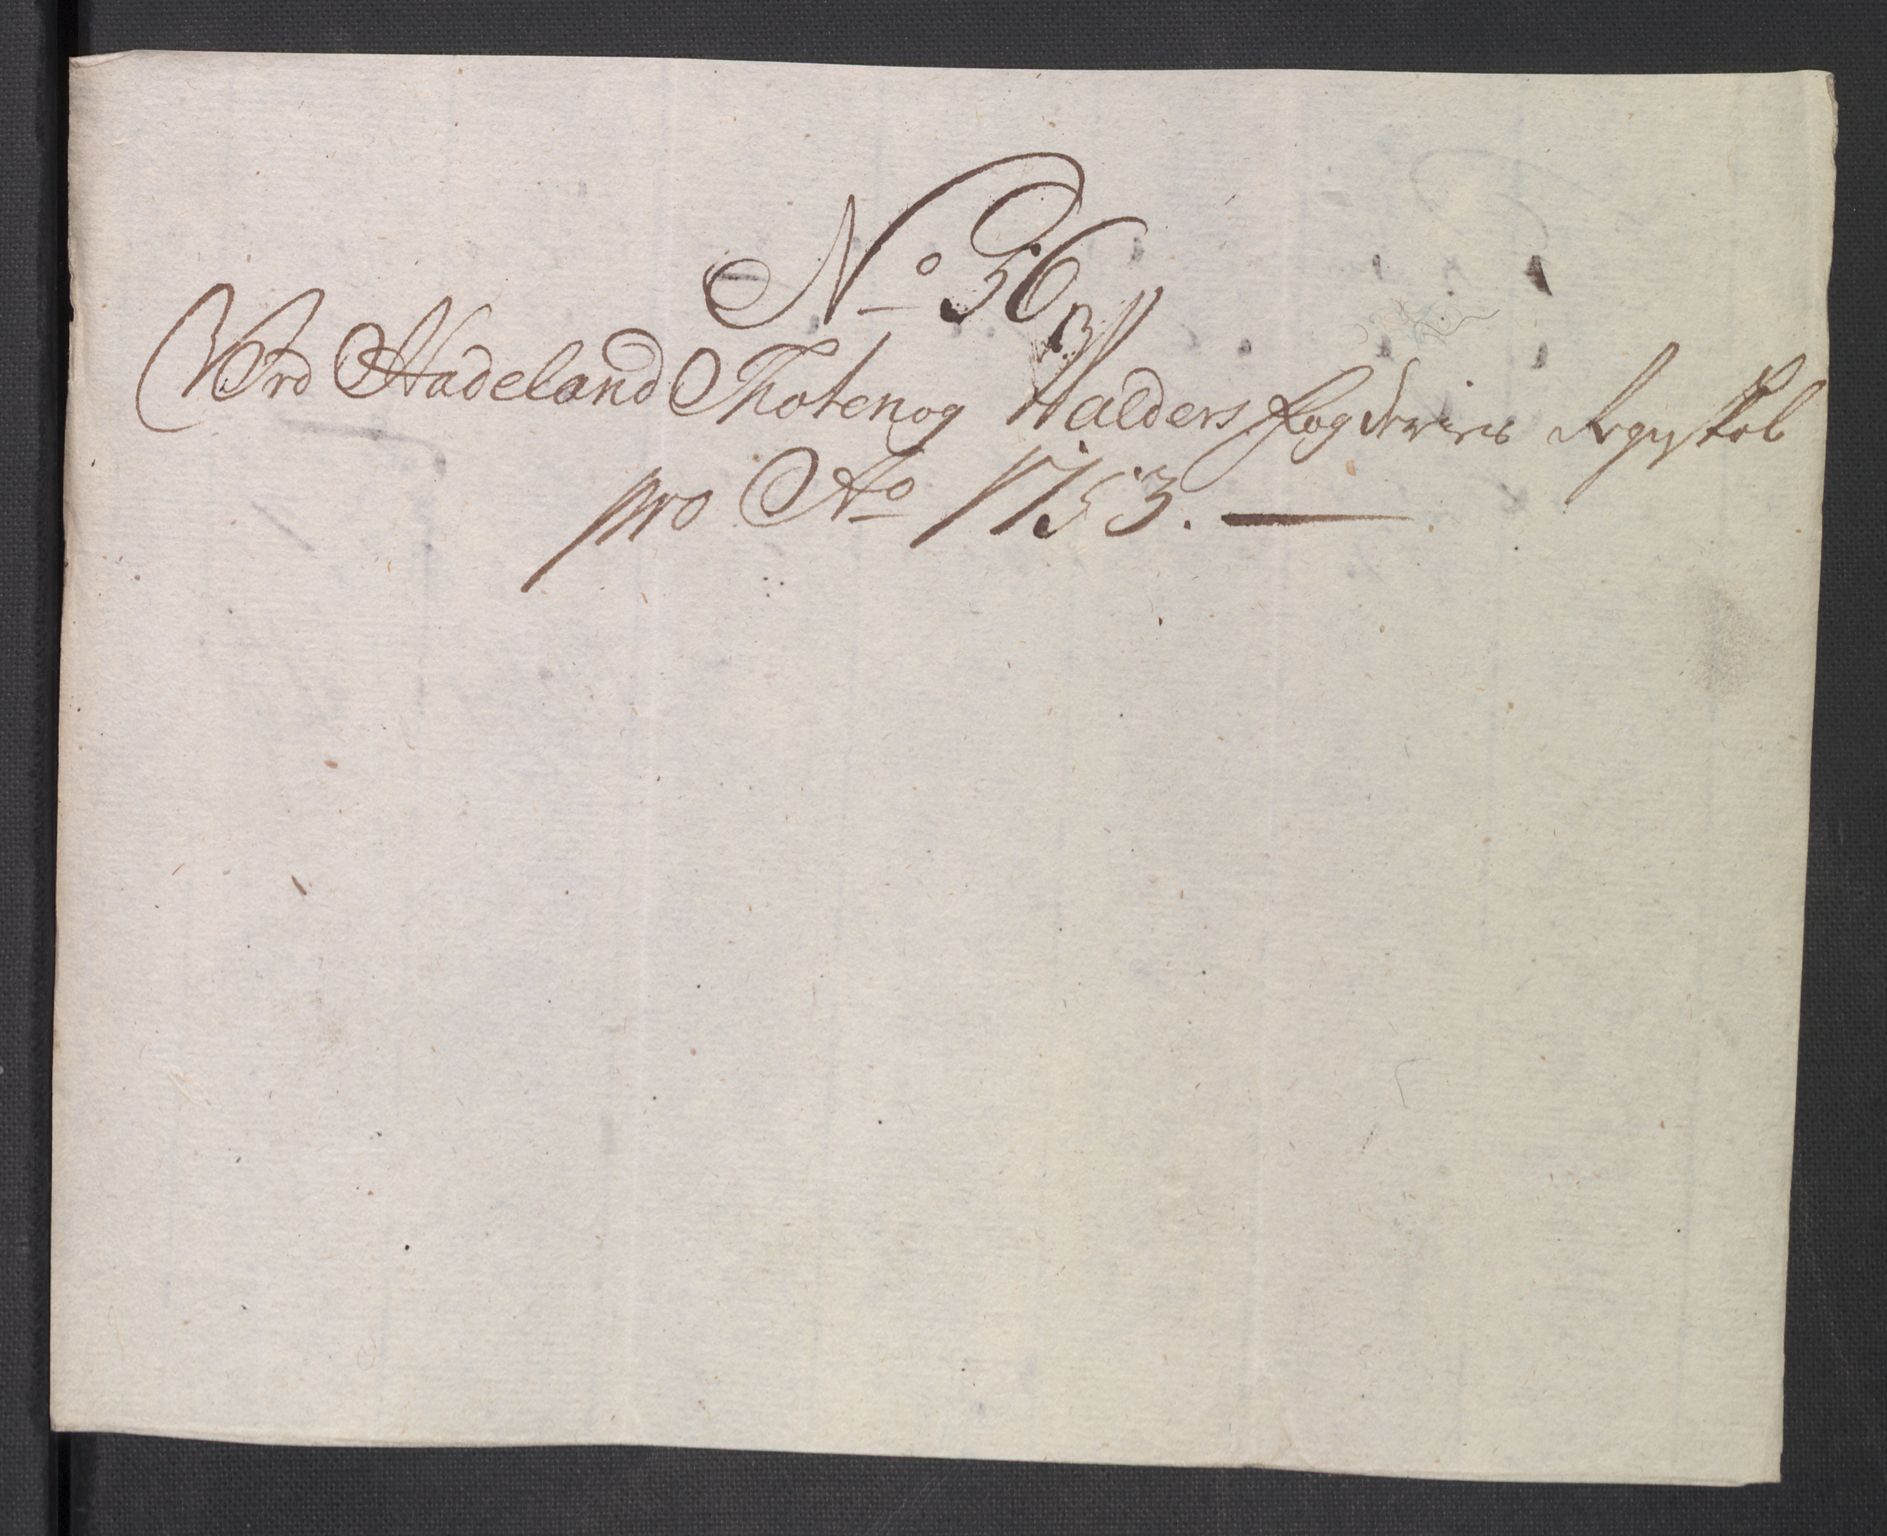 No 56
Ved Hadeland Thoten og Walders Fogderies Regnskab
pro Ao 1753.